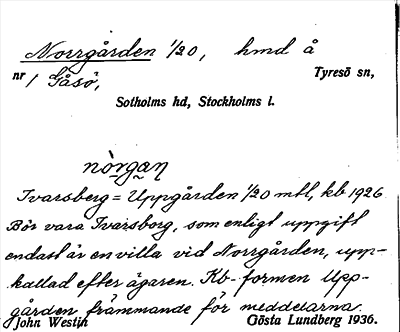 Norrgården 1/20, hmd å
nr 1 Gåsö, Tyresö sn,
Sotholms hd, Stockholms l.
nòrgaŋ
Ivarsberg = Uppgården 1/20 mtl, kb 1926
Bör vara Ivarsborg, som enligt uppgift
endast är en villa vid Norrgården, upp-
kallad efter ägaren. Kb-formen Upp-
gården främmande för meddelarna.
John Westin Gösta Lundberg 1936.